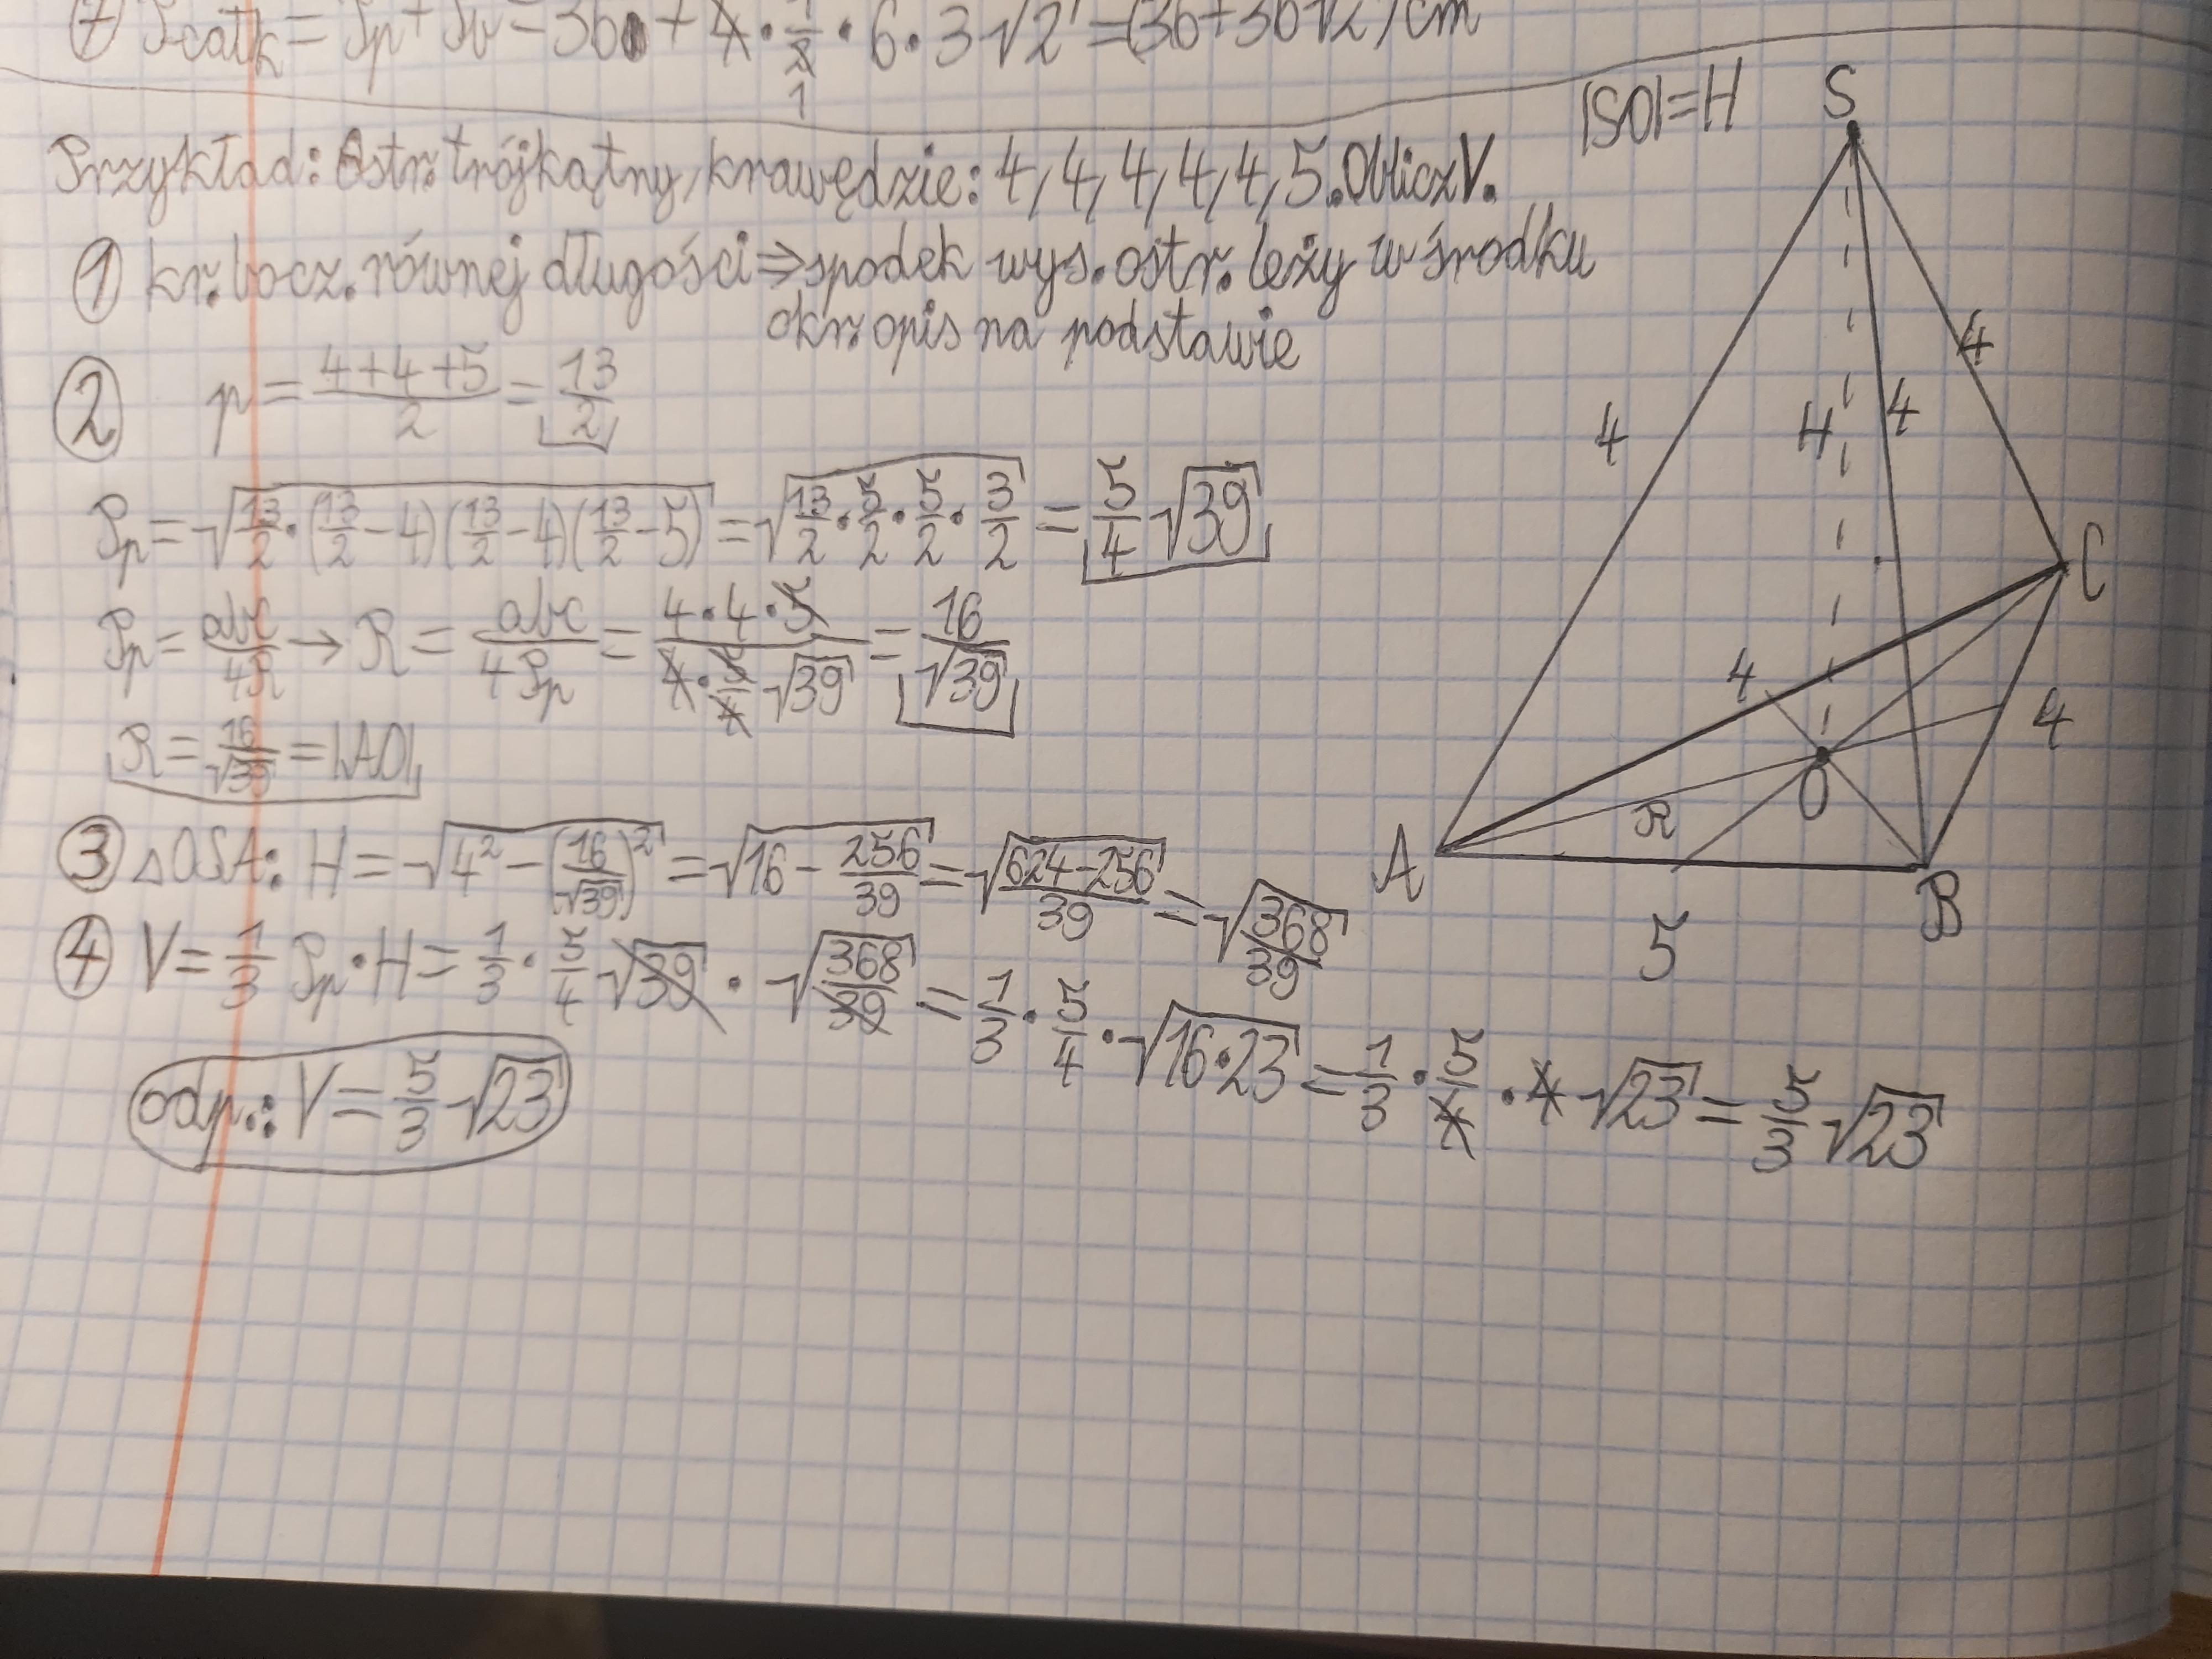 ⑦ Pcałk = Pp + Pb = 36 + 4 · 1/2 · 6 · 3√2 = (36+36√2) cm
1
Przykład: Ostr. trójkątny, krawędzie: 4, 4, 4, 4, 4, 5. Oblicz V.
① kr. bocz. równej długości ⇒ spodek wys. ostr. leży w środku
okr. opis na podstawie
② p = (4+4+5)/2 = 13/2
Pp = √(13/2 · (13/2 − 4)(13/2 − 4)(13/2 − 5)) = √(13/2 · 5/2 · 5/2 · 3/2) = 5/4 √39
Pp = abc/4R → R = abc/4Pp = (4·4·5)/(4 · 5/4 √39) = 16/√39
R = 16/√39 = |AO|
③ △OSA: H = √(4² − (16/√39)²) = √(16 − 256/39) = √((624−256)/39) = √(368/39)
④ V = 1/3 Pp · H = 1/3 · 5/4 √39 · √(368/39) = 1/3 · 5/4 · √(16·23) = 1/3 · 5/4 · 4 √23 = 5/3 √23
odp.: V = 5/3 √23
|SO| = H
S
4
H
4
4
C
4
4
O
R
A
B
5